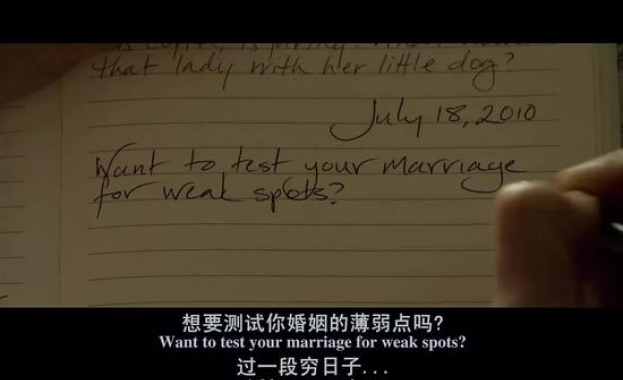 that lady with her little dog?
July 18, 2010
Want to test your marriage
for weak spots?
想要测试你婚姻的薄弱点吗?
Want to test your marriage for weak spots?
过一段穷日子...